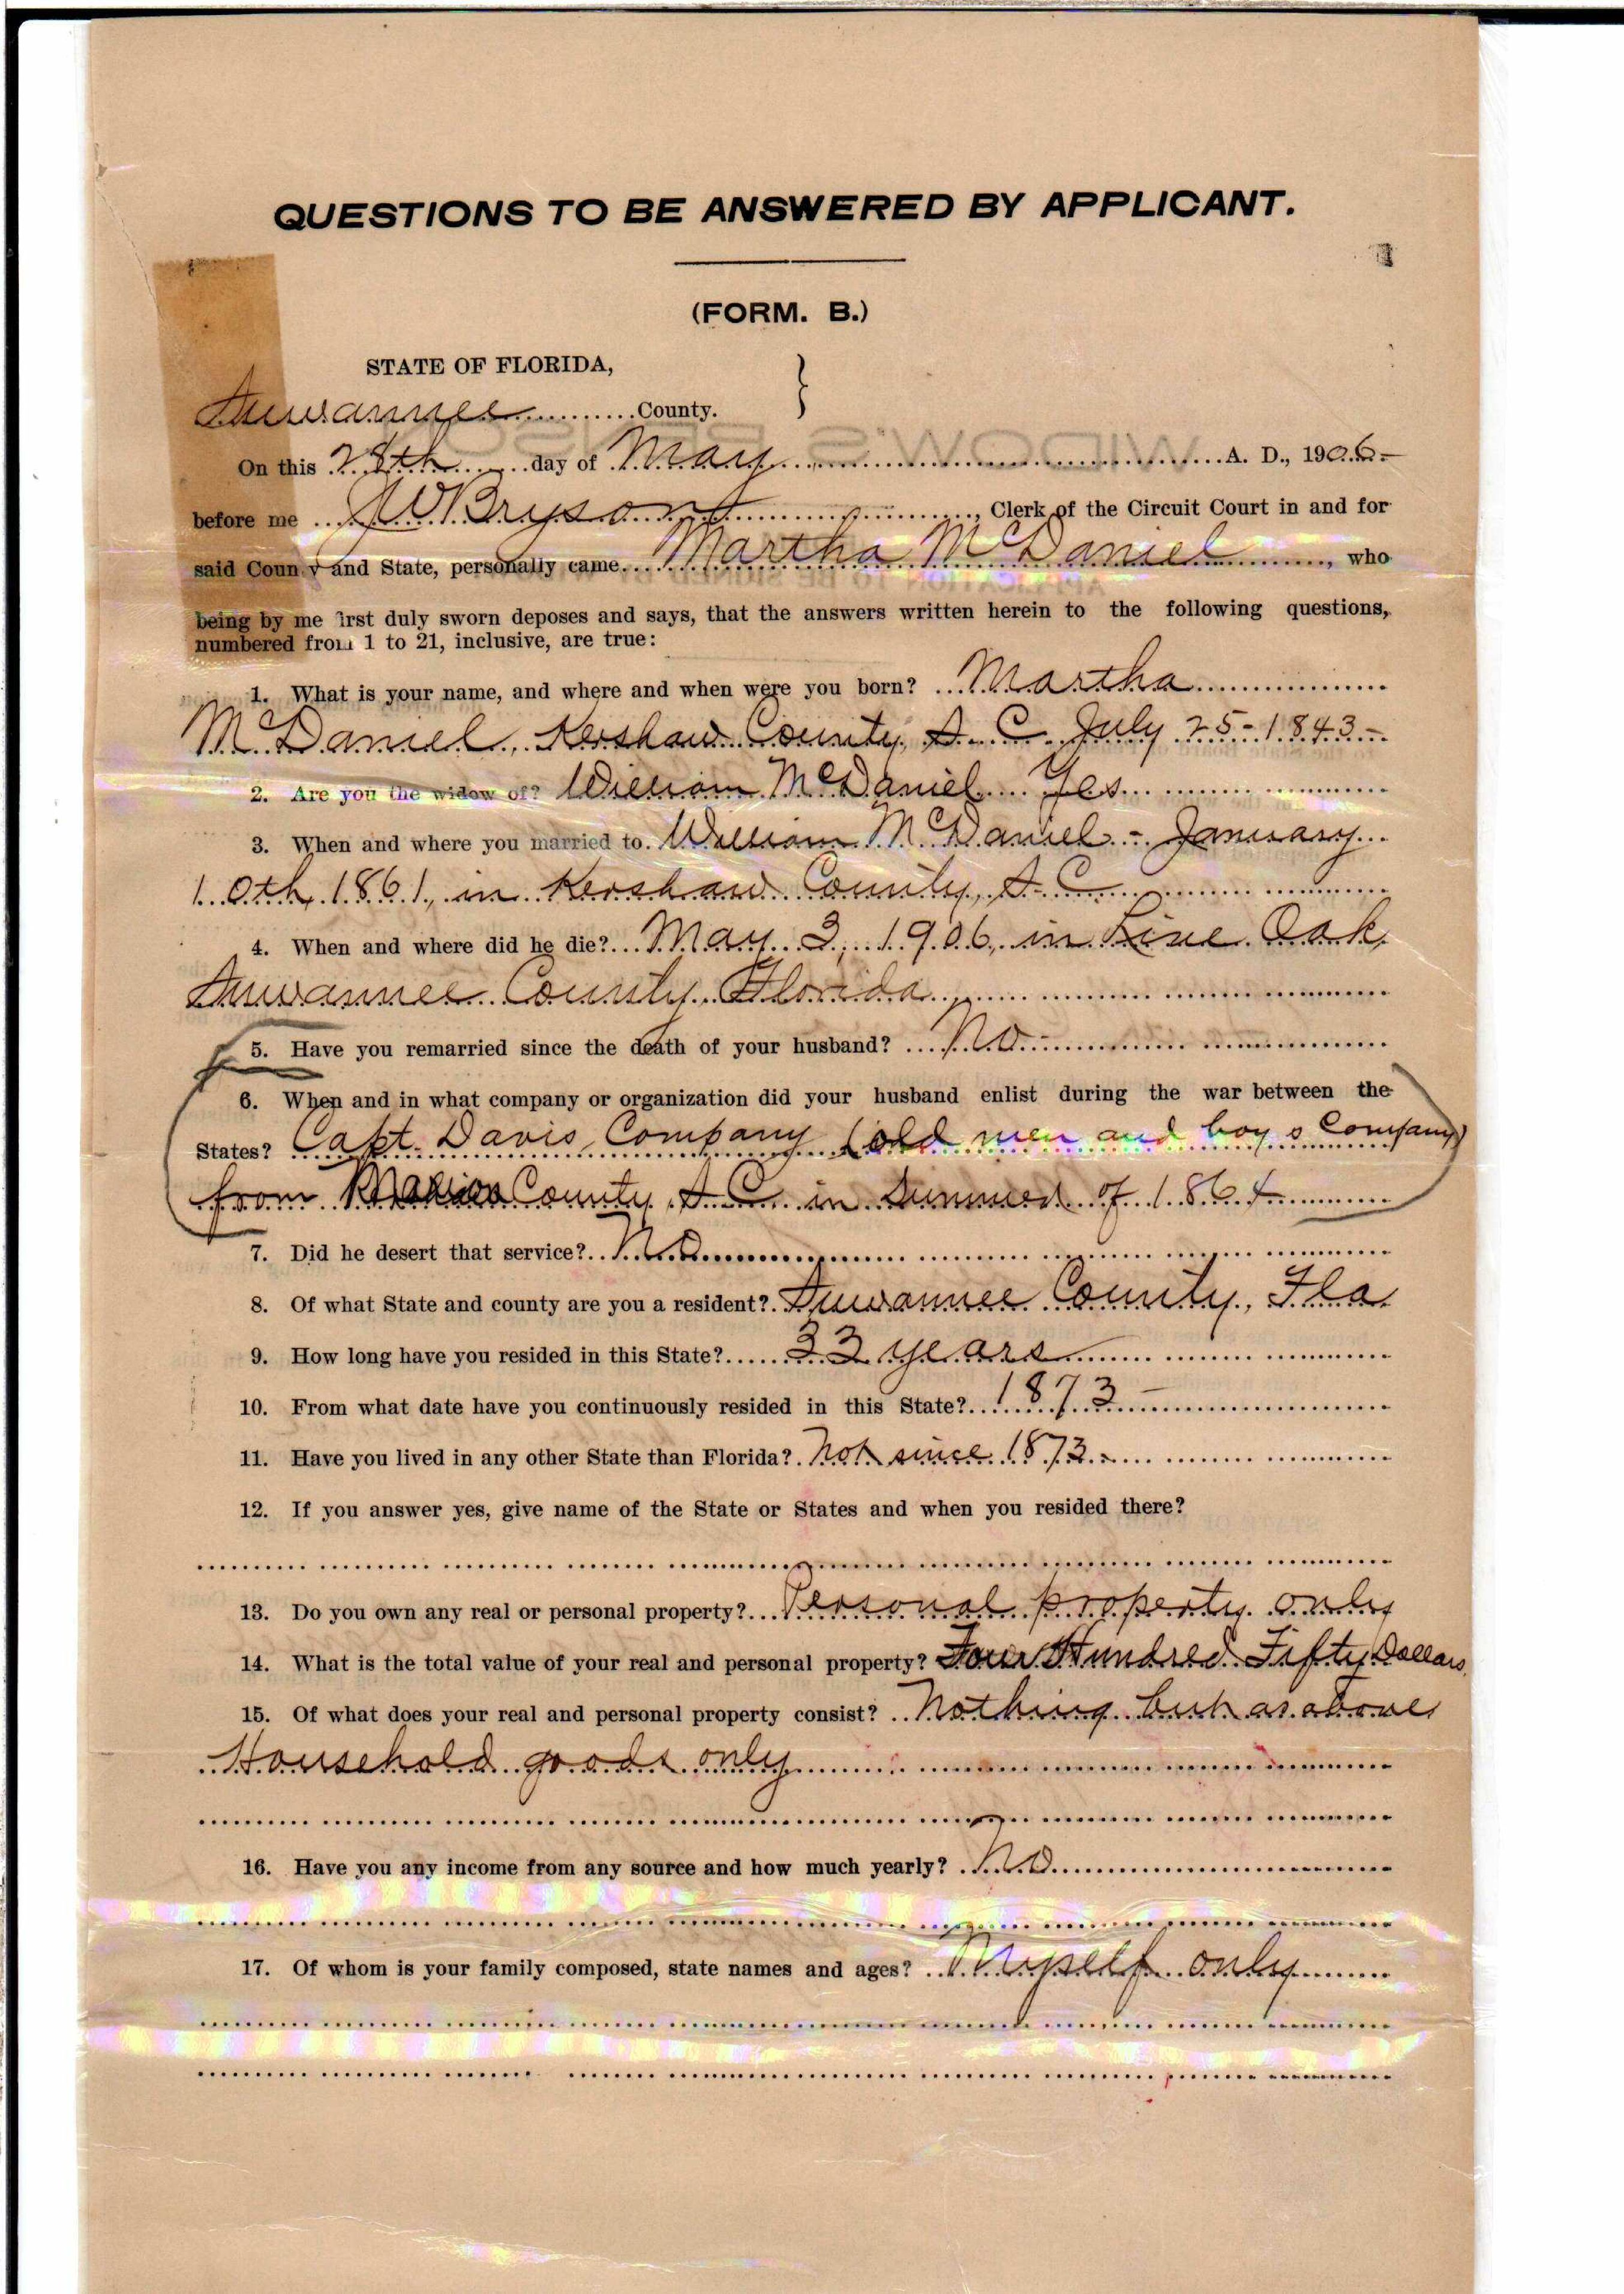 QUESTIONS TO BE ANSWERED BY APPLICANT.
(FORM. B.)
STATE OF FLORIDA,
Suwannee County.
On this 28th day of May A. D., 1906-
before me J W Bryson, Clerk of the Circuit Court in and for
said County and State, personally came Martha McDaniel, who
being by me first duly sworn deposes and says, that the answers written herein to the following questions,
numbered from 1 to 21, inclusive, are true:
1. What is your name, and where and when were you born? Martha
McDaniel, Kershaw County, S. C. July 25-1843-
2. Are you the widow of? William McDaniel Yes
3. When and where you married to. William McDaniel - January
10th, 1861, in Kershaw County, S. C.
4. When and where did he die? May 3, 1906, in Live Oak,
Suwannee County, Florida
5. Have you remarried since the death of your husband? No
6. When and in what company or organization did your husband enlist during the war between the
States? Capt. Davis Company (old men and boys Company)
from County, S. C. in Summer of 1864
7. Did he desert that service? No
8. Of what State and county are you a resident? Suwannee County, Fla.
9. How long have you resided in this State? 33 years
10. From what date have you continuously resided in this State? 1873 -
11. Have you lived in any other State than Florida? Not since 1873 -
12. If you answer yes, give name of the State or States and when you resided there?
13. Do you own any real or personal property? Personal property only
14. What is the total value of your real and personal property? Four Hundred Fifty Dollars,
15. Of what does your real and personal property consist? Nothing but as above
Household goods only
16. Have you any income from any source and how much yearly? No
17. Of whom is your family composed, state names and ages? Myself only